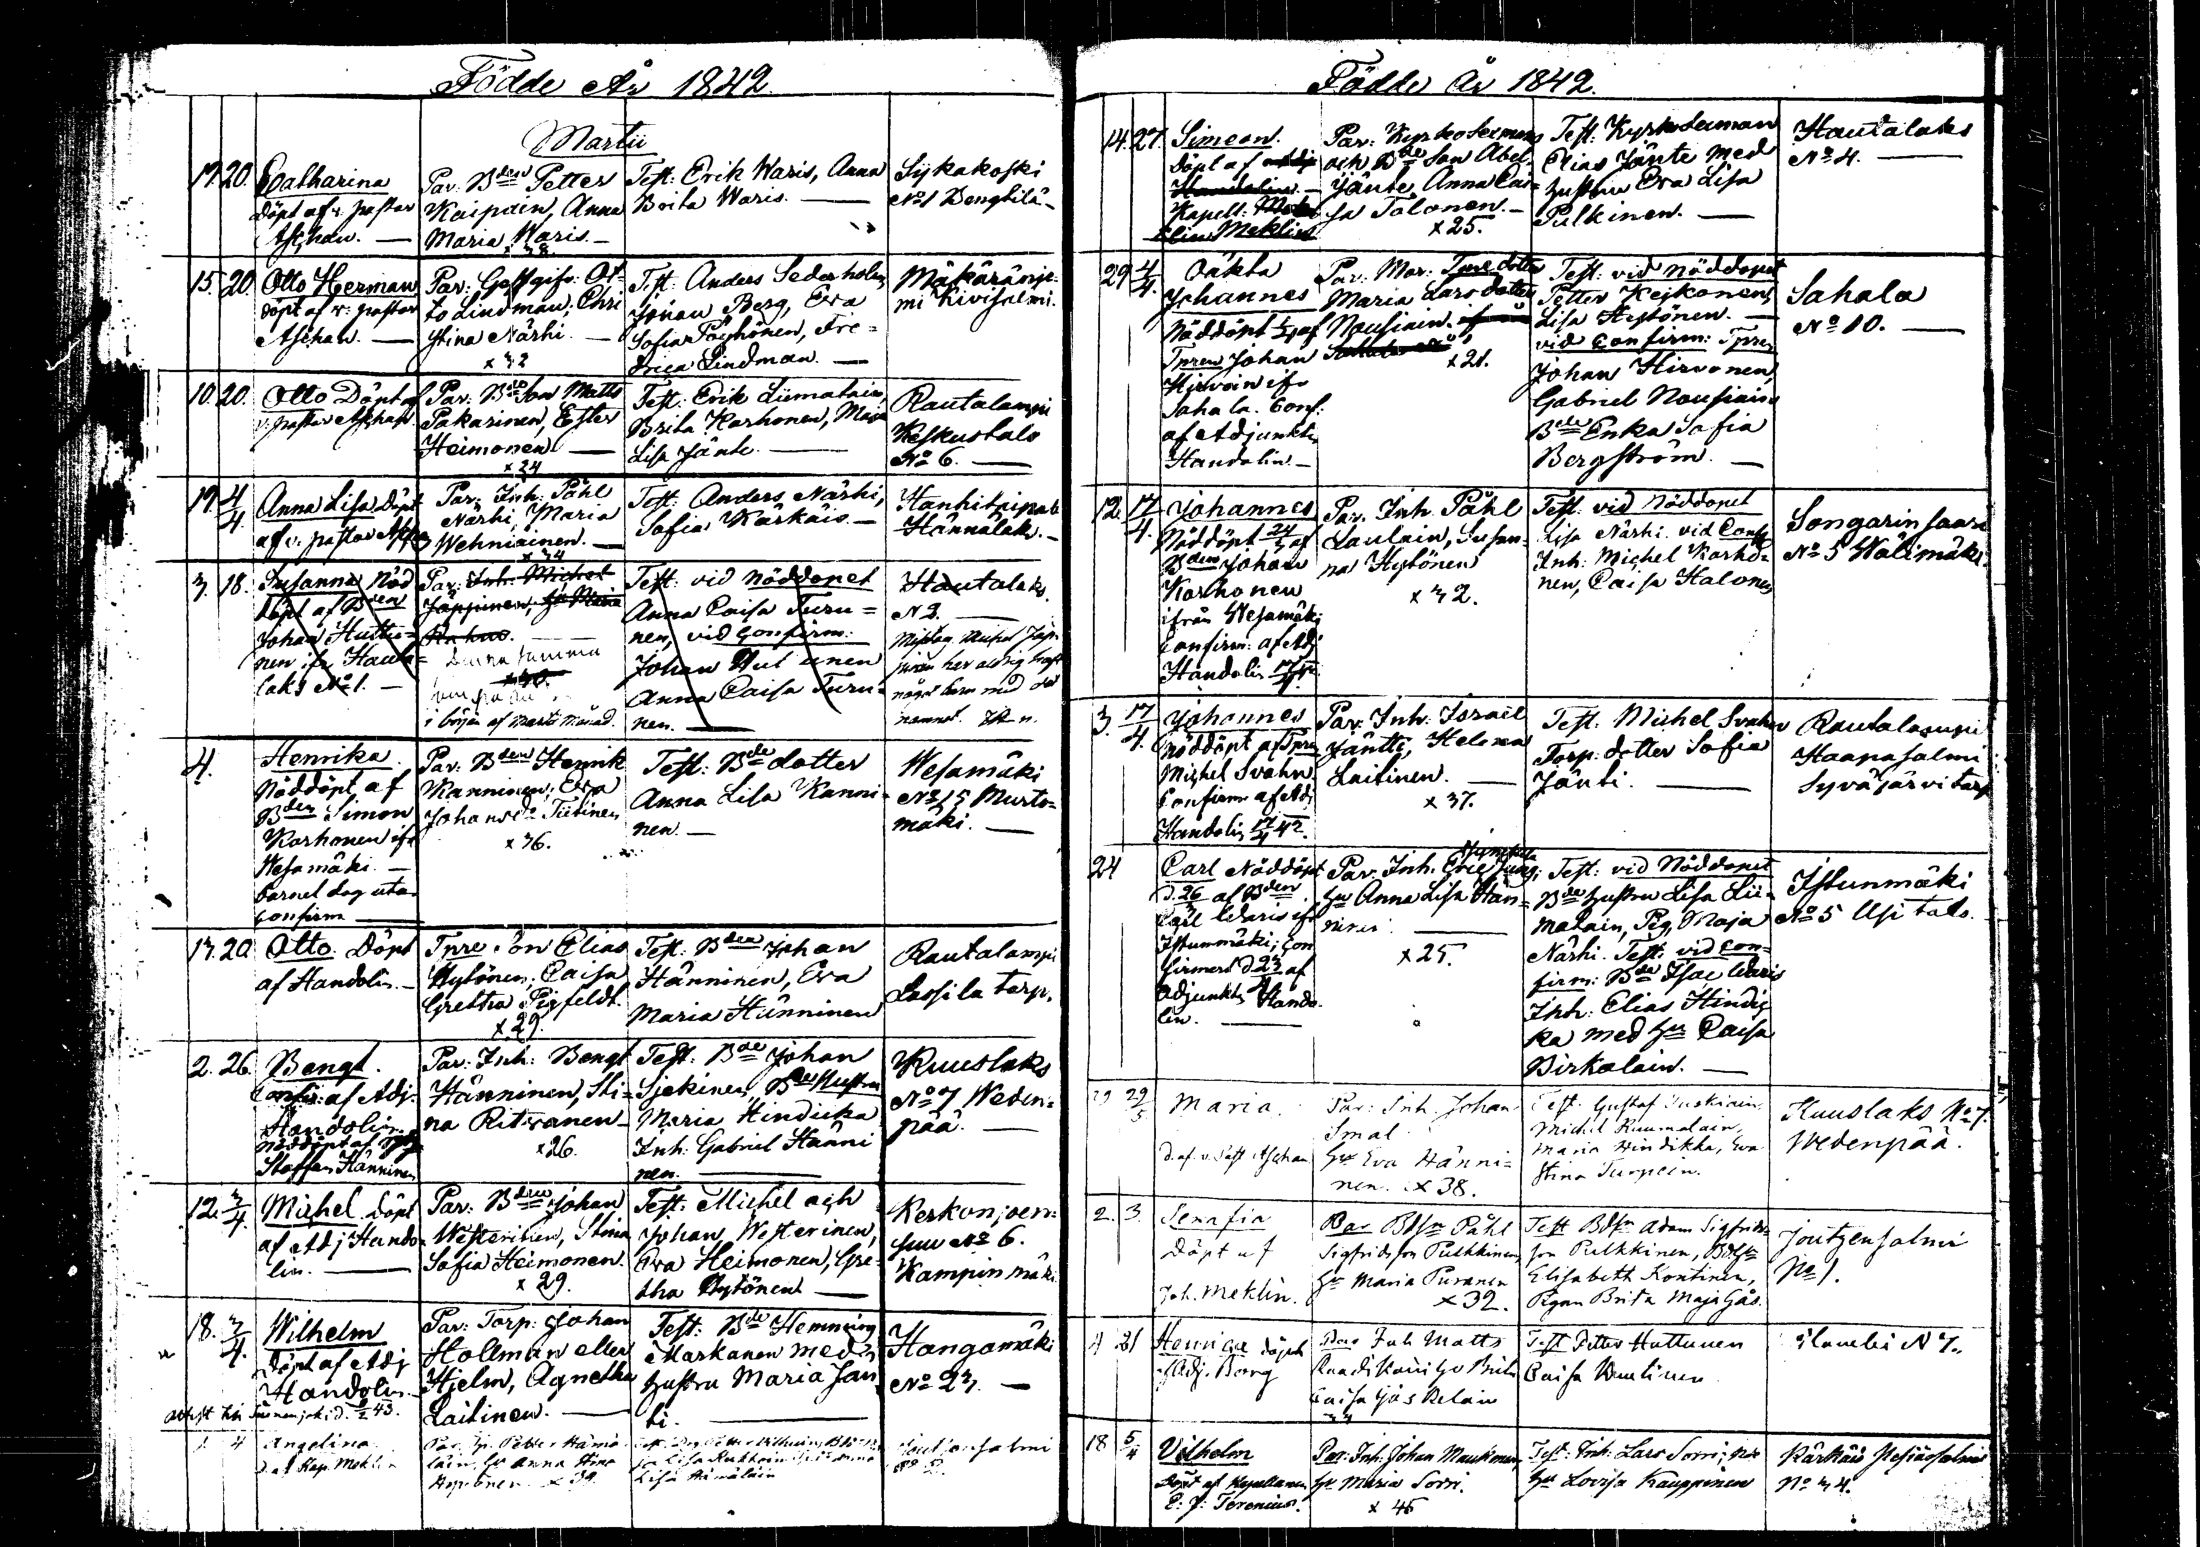 Födde År 1842.
Martii
17. 20. Catharina
Döpt af v. pastor
Aschan. —
Par: Bden Petter
Kaipain, Anna
Maria Waris. —
x 38.
Test: Erik Waris, Anna
Brita Waris. —
Sykakoski
No 1 Bengtilä —
15. 20. Otto Herman
Döpt af v: pastor
Aschan. —
Par: Gästgifv: Ot-
to Lindman, Chri
stina Närhi. —
x 32
Test: Anders Sederholm,
Johan Berg, Eva
Sofia Pöyhönen, Fre=
drica Lindman. —
Mäkäränie-
mi Kivisalmi.
10. 20. Otto Döpt af
v. pastor Aschan.
Par: Bde Son Matts
Pakarinen, Ester
Heimonen —
x 24
Test: Erik Liimatain,
Brita Korhonen, Maja
Lisa Jänte. —
Rautalampi
Keskustalo
No 6. —
19. 4/4 Anna Lisa Döpt
af v. pastor
Par: Inh: Påhl
Närhi, Maria
Wehniäinen. —
x 34
Test: Anders Närhi,
Sofia Kärkäis. —
Hännälaks. —
3. 18. Susanna Nöd
döpt af Bden
Johan Huttu-
nen ifr Hauta-
laks No 1. —
Par: Inh: Michel
Jäppinen, Hu Maria
Denna samma
x 30.
i början af Martii Månad.
Test: vid Nöddopet
Anna Caisa Turu=
nen, vid Confirm:
Johan Hut unen
Anna Caisa Turu-
nen. —
Hautalaks
N 2. —
Michel
har aldrig haft
något barn med det
namnet.
4. Henrika
Nöddöpt af
Bden Simon
Korhonen ifr
Wesamäki. —
barnet dog utan
confirm —
Par: Bden Henrik
Kanninen, Eva
Johansdr Tiitinen
x 36.
Test: Bde dotter
Anna Lisa Kanni-
nen. —
Wesamäki
No 15 Murto-
mäki. —
13. 20 Otto. Döpt
af Handolin. —
Son Elias
Hytönen, Caisa
Gretha Pigfeldt.
x 29.
Test: Bden Johan
Hänninen, Eva
Maria Hänninen
Rautalampi
Lassila torp.
2. 26. Bengt.
Confir: af Adj.
Handolin.
Nöddöpt af
Staffan Hänninen
Par: Inh: Bengt
Hänninen, Sti-
na Ritvanen —
x 26.
Test: Bde Johan
Sjekinen, Bde Hustru
Maria Hindicka
Inh: Gabriel Hänni
nen. —
Kuuslaks
No 7 Weden-
pää. —
12. 3/4. Michel Döpt
af Adj Hando-
lin. —
Par: Bden Johan
Westerinen, Stina
Sofia Heimonen.
x 29.
Test: Michel och
Johan Westerinen,
Eva Heimonen, Gre-
tha Hytönen —
Kerkonjoen-
suu No 6.
Kampinmäki
18. 3/4. Wilhelm
Döpt af Adj
Handolin.
Par: Torp: Johan
Hollman eller
Hjelm, Agnetha
Laitinen. —
Test: Bde Hemming
Markanen med
hustru Maria Jan
ti. —
Hangamäki
No 23. —
4 Angelina
D. af Kap. Meklin
Par: Petter Hämä-
läin, Hu Anna Stina
Lisa Hämäläin

Födde År 1842.
14. 27. Simeon.
Döpt af
Handolin —
Kapell:
Meklin
Par: Kyrkosexmans
och Bde Son Abel
Jänte, Anna Cai-
sa Tolonen. —
x 25.
Test: Kyrkosexman
Elias Jänte med
hustru Eva Lisa
Pulkinen. —
Hautalaks
No 4. —
29 4/4. Oäkta
Johannes
Nöddöpt af
Johan
Hirvoin ifr
Sahala. Conf:
af Adjunkten
Handolin —
Par: Mor:
Maria Larsdotter
Nousiain.
x 21.
Test: vid Nöddopet
Petter Keikonen
Lisa Hytönen. —
vid Confirm:
Johan Hirvonen,
Gabriel Nousiain
Bde Enka Sofia
Bergström. —
Sahala
No 10. —
12. 17/4. Johannes
Nöddöpt 24/3 af
Bden Johan
Korhonen
ifrån Wesamäki
Confirm: af Adj
Handolin
Par. Inh. Påhl
Laulain, Susan-
na Hytönen
x 32.
Test: vid Nöddopet
Lisa Närhi. vid Conf
Inh: Michel Korho-
nen, Caisa Halonen
Songarinsaari
No 5 Wälimäki.
3. 17/4. Johannes
Nöddöpt af
Michel Svahn
Confirm af Adj
Handolin 17/4 42.
Par: Inh: Israel
Jäntti, Helena
Laitinen. —
x 37.
Test: Michel Svahn
Torp: dotter Sofia
Jänti. —
Rautalampi
Haapasalmi
Syväjärvi torp
24 Carl Nöddöpt
d. 26 af Bden
Carl Waris ifr
Istunmäki; Con
firmerd d 23/4 af
Adjunkten Hando-
lin. —
Par. Inh. Eric
Hu Anna Lisa Hän-
ninen —
x 25.
Test: vid Nöddopet
Bde hustru Lisa Lii-
matain, Pig. Maja
Närhi. Test: vid Con-
firm: Bde Isac Waris
Inh: Elias Hindi-
ka med Hu Caisa
Pirkalain. —
Istunmäki
No 5 Usi talo.
29/3 Maria.
D. af. v. Past Aschan
Par: Inh. Johan
Smal
Hu Eva Hänni-
nen. x 38.
Test. Gustaf
Michel Ruumalain,
Maria Hindikka, Eva
Stina Turpein.
Kuuslaks No 7.
Wedenpää.
2. 3. Serafia
Döpt af
Joh. Meklin.
Par Bdsn Påhl
Sigfridsson Pulkkinen,
Hu Maria Puranen
x 32.
Test Bdsn Adam Sigfrids-
son Pulkkinen,
Elisabeth Kontinen,
Pigan Brita Maja Gås.
Joutzensalmi
No 1.
21 Henrica Döpt
af Adj. Borg
Par Inh Matts
Hu Brita
Caisa Gås
Test Petter Huttunen
Caisa
N 7.
18 5/4 Vilhelm
Döpt af Kapellanen
E. J. Terenius.
Par. Inh. Johan Maukonen,
Hu Maria Sorri.
x 45
Test: Inh. Lars Sorri,
Hu Lovisa Kauppinen
Kärkäis
No 34.